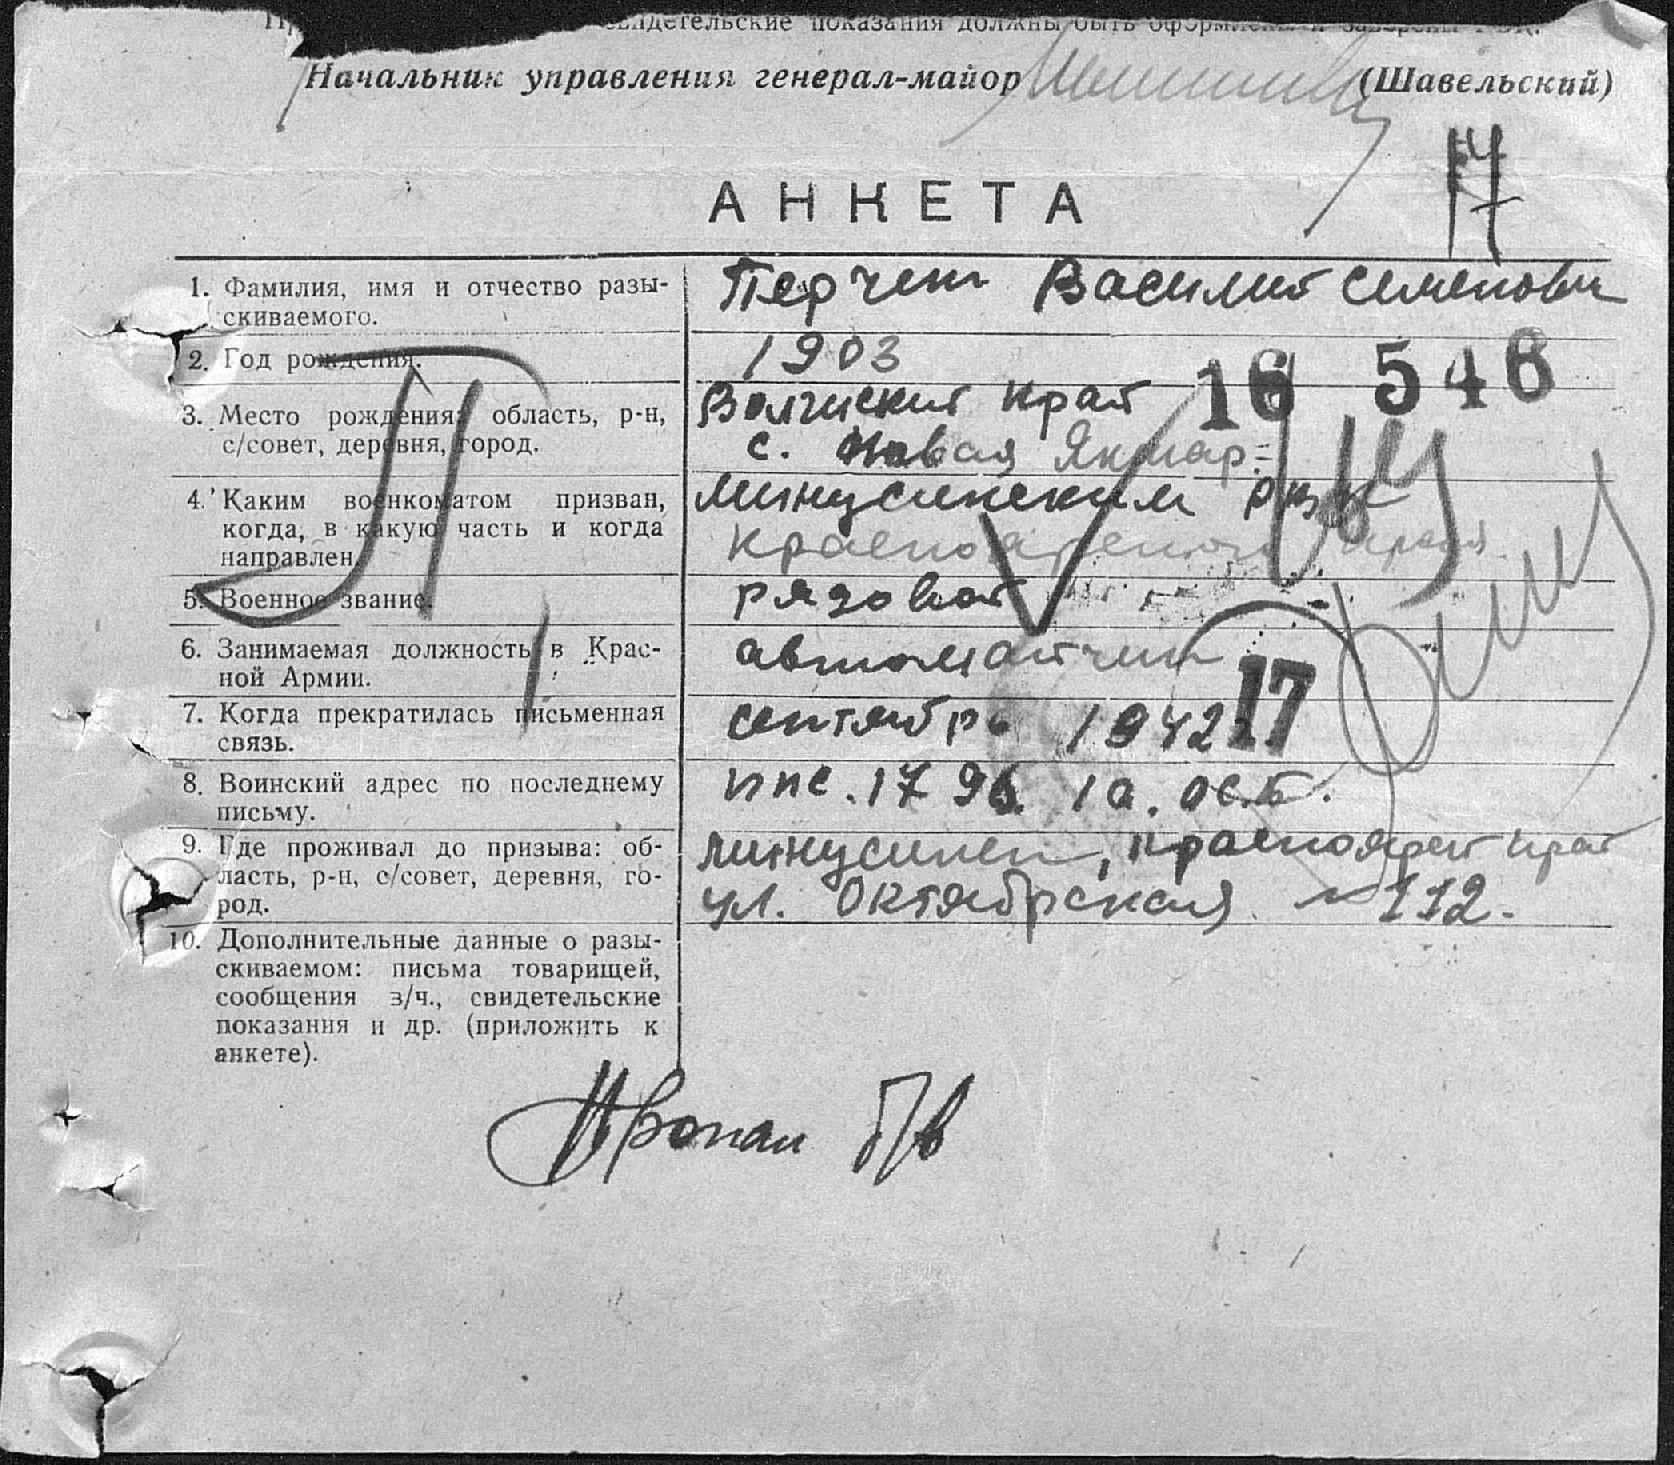 свидетельские показания должны быть оформлены и заверены
Начальник управления генерал-майор (Шавельский)
АНКЕТА
1. Фамилия, имя и отчество разы-
скиваемого.
Перчет Василий Семенович
2. Год рождения.
1903
16 546
3. Место рождения: область, р-н,
с/совет, деревня, город.
Волжский край
с. Новая
4. Каким военкоматом призван,
когда, в какую часть и когда
направлен.
Минусинским РВК
Красноярского края
5. Военное звание.
рядовой
6. Занимаемая должность в Крас-
ной Армии.
автоматчик
17
7. Когда прекратилась письменная
связь.
сентябрь 1942 г.
8. Воинский адрес по последнему
письму.
ппс. 1796. 10. ОС.Б.
9. Где проживал до призыва: об-
ласть, р-н, с/совет, деревня, го-
род.
Минусинск, Красноярск край
ул. Октябрьская №112.
10. Дополнительные данные о разы-
скиваемом: письма товарищей,
сообщения з/ч., свидетельские
показания и др. (приложить к
анкете).
Пропал б/в